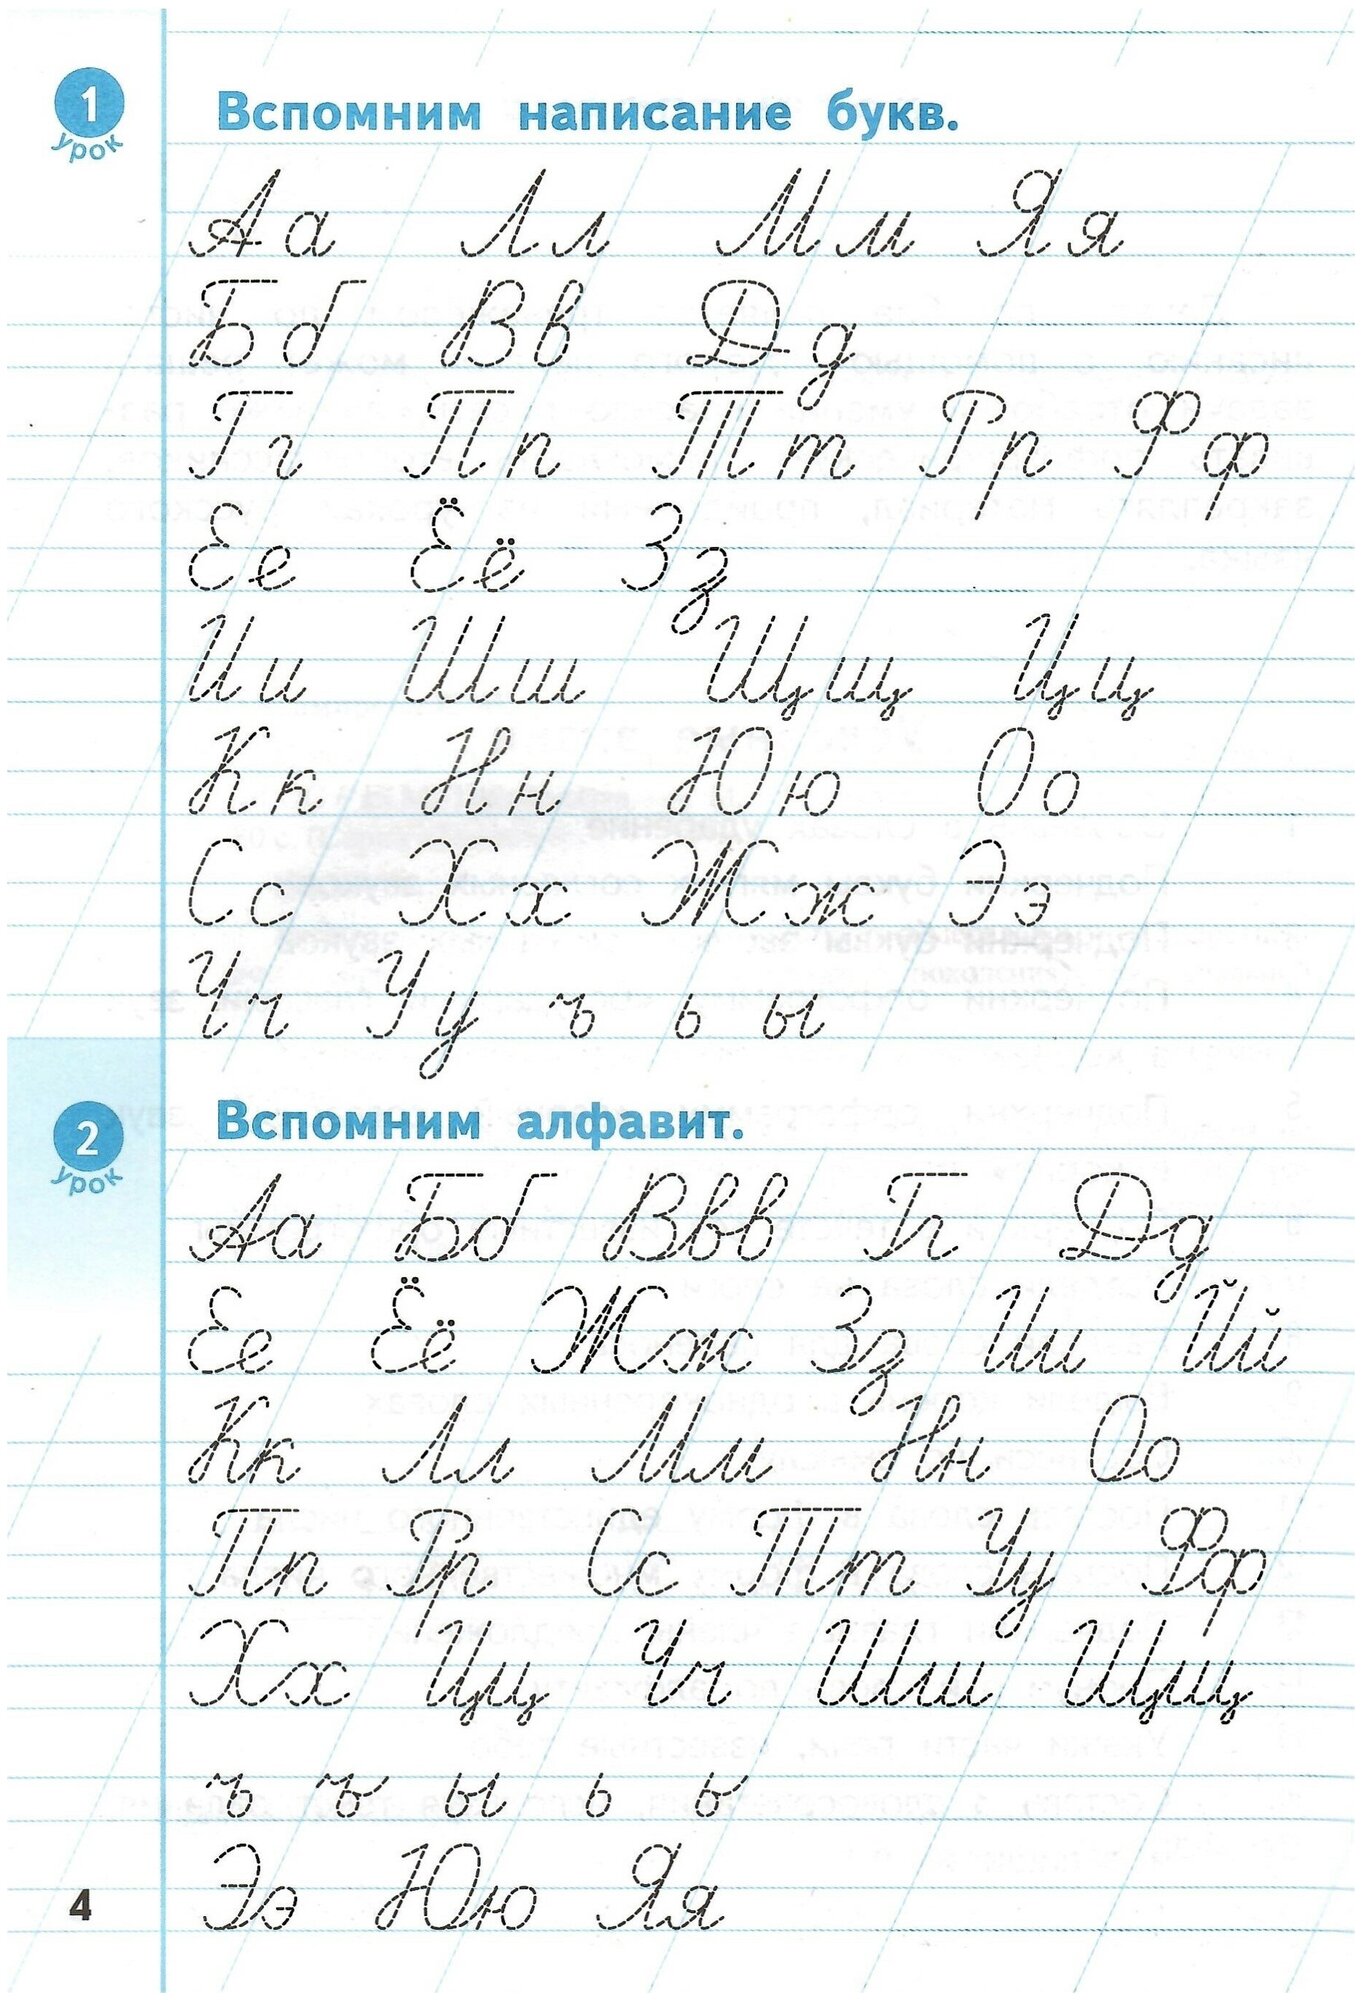 1 урок
Вспомним написание букв.
Аа Лл Мм Яя
Бб Вв Дд
Гг Пп Тт Рр Фф
Ее Ёё Зз
Ии Шш Щщ Цц
Кк Нн Юю Оо
Сс Хх Жж Ээ
Чч Уу ъ ь ы
2 урок
Вспомним алфавит.
Аа Бб Ввв Гг Дд
Ее Ёё Жж Зз Ии Йй
Кк Лл Мм Нн Оо
Пп Рр Сс Тт Уу Фф
Хх Цц Чч Шш Щщ
ъ ъ ы ь ь
Ээ Юю Яя
4